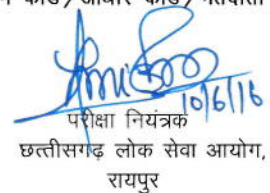 कार्ड/आधार कार्ड/मतदाता
10/6/16
परीक्षा नियंत्रक
छत्तीसगढ़ लोक सेवा आयोग,
रायपुर